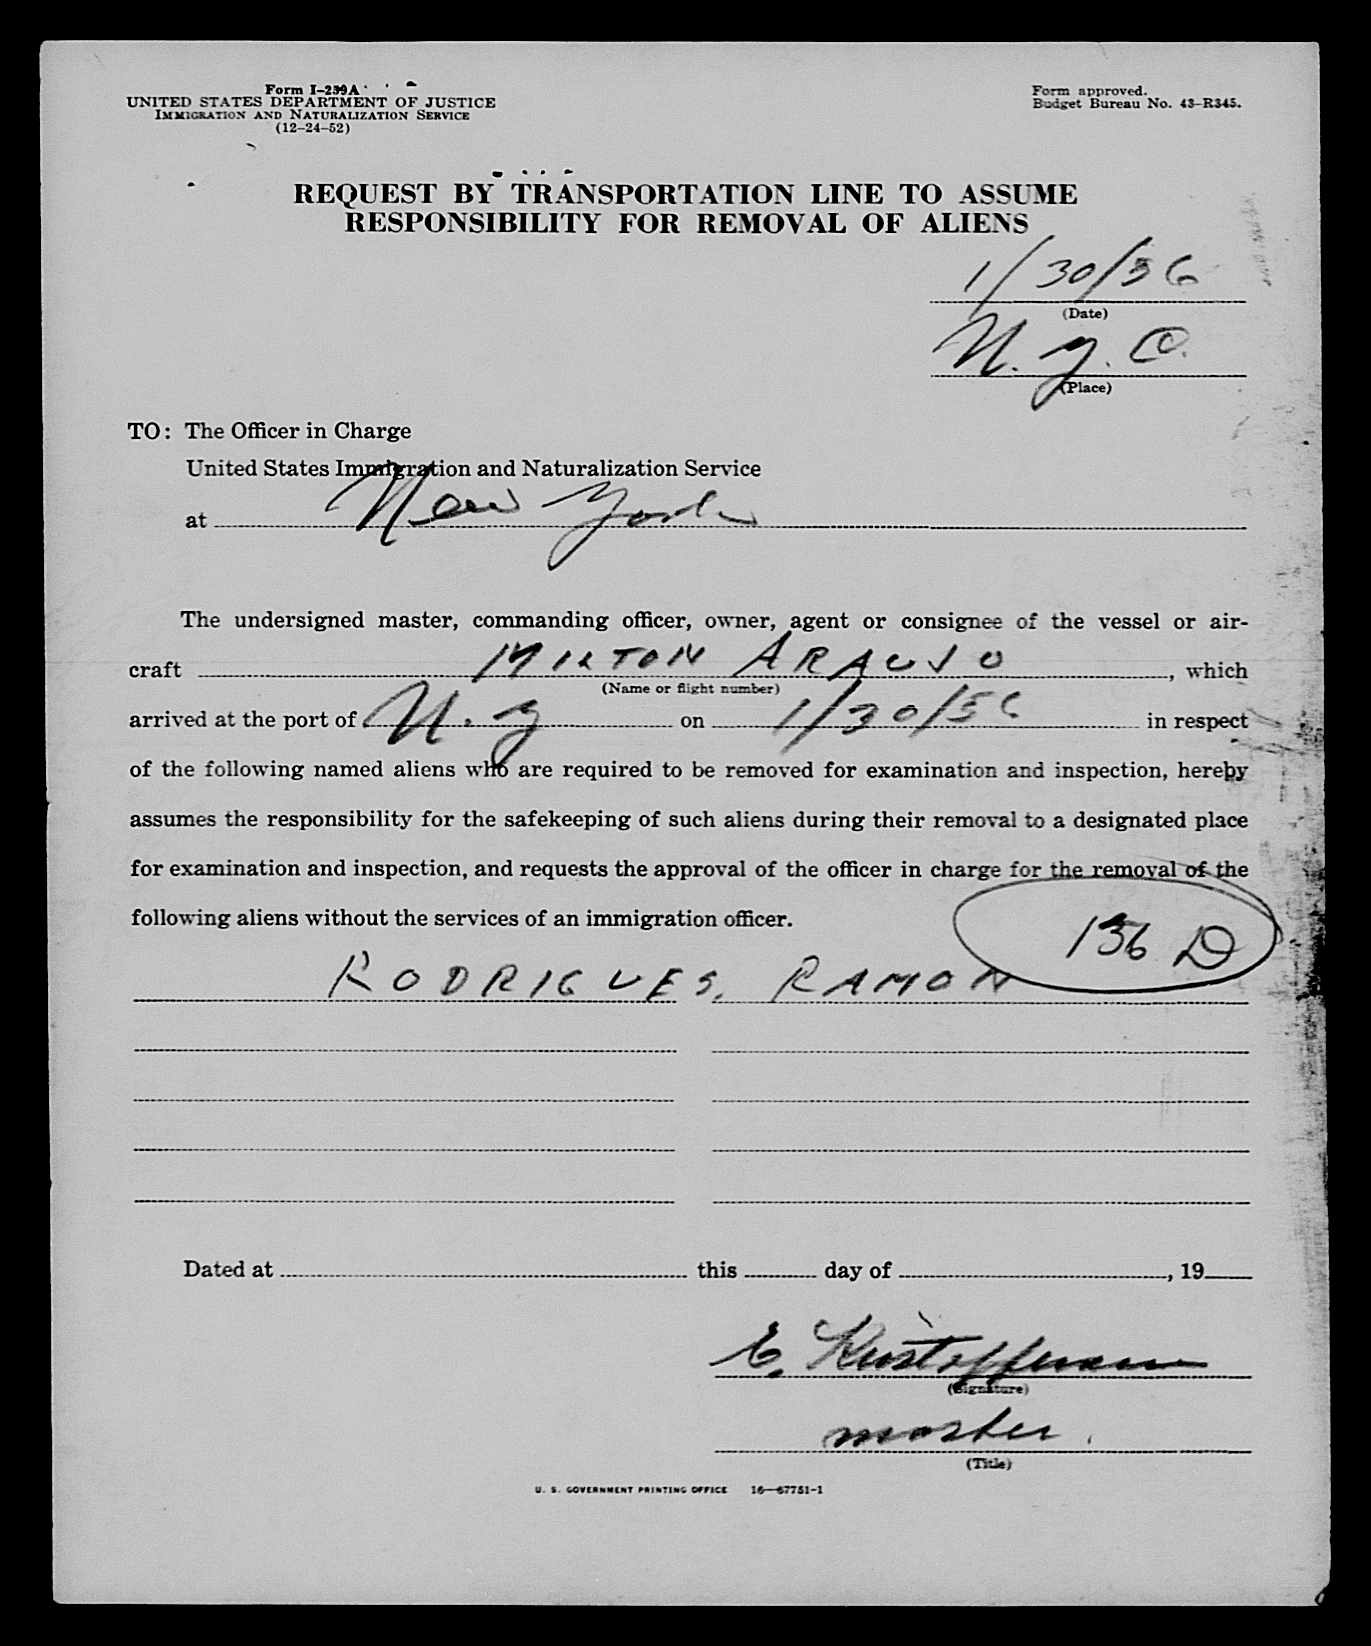 Form I-259A
UNITED STATES DEPARTMENT OF JUSTICE
IMMIGRATION AND NATURALIZATION SERVICE
(12-24-52)
Form approved.
Budget Bureau No. 43-R345.
REQUEST BY TRANSPORTATION LINE TO ASSUME
RESPONSIBILITY FOR REMOVAL OF ALIENS
1/30/56
(Date)
N. Y. C.
(Place)
TO: The Officer in Charge
United States Immigration and Naturalization Service
at New York
The undersigned master, commanding officer, owner, agent or consignee of the vessel or air-
craft MILTON ARAUJO, which
(Name or flight number)
arrived at the port of N. Y on 1/30/56 in respect
of the following named aliens who are required to be removed for examination and inspection, hereby
assumes the responsibility for the safekeeping of such aliens during their removal to a designated place
for examination and inspection, and requests the approval of the officer in charge for the removal of the
following aliens without the services of an immigration officer.
136 D
RODRIGUES, RAMON
Dated at this day of , 19
E.
(Signature)
master.
(Title)
U. S. GOVERNMENT PRINTING OFFICE 16—67751-1